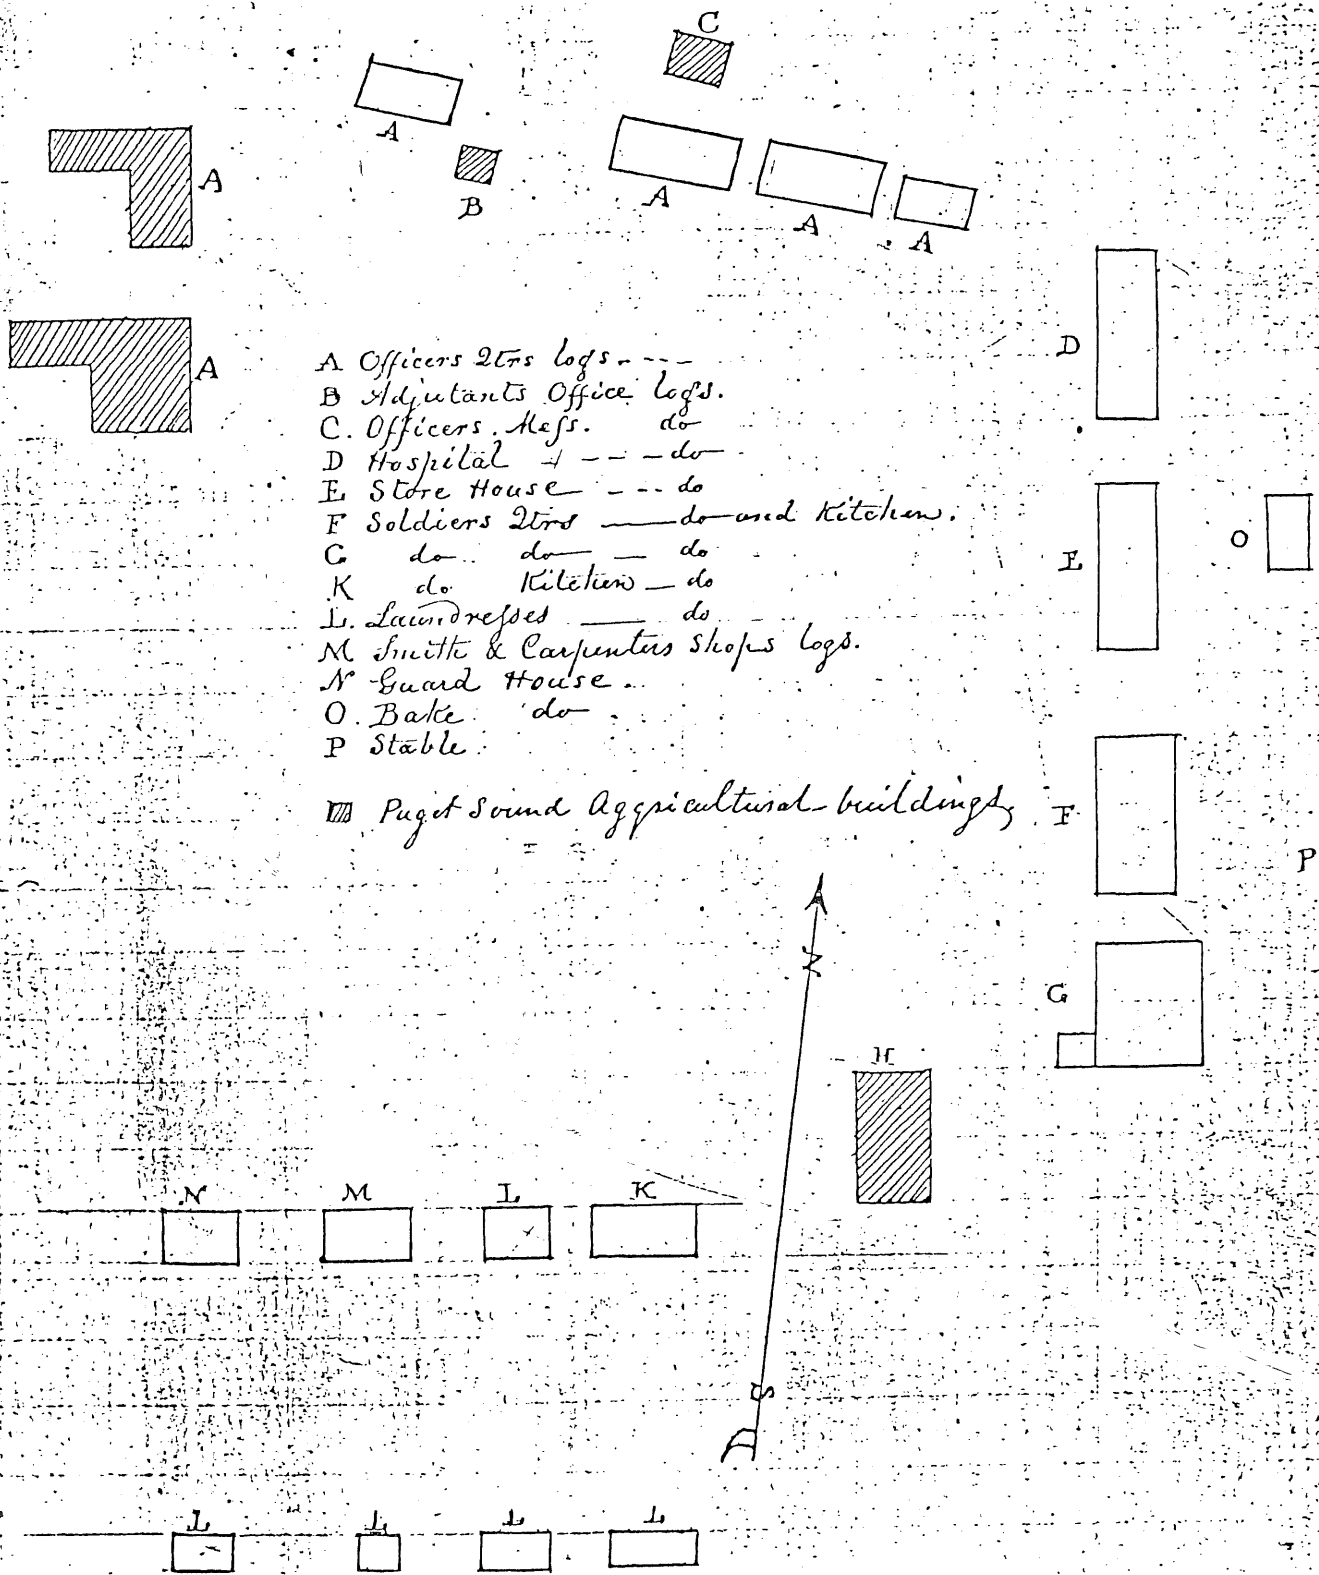 C
A
A
B
A
A
A
D
A
A Officers Qtrs logs. - - -
B Adjutants Office logs.
C. Officers. Mess. do
D Hospital - - - do
E Store House - - - do
F Soldiers Qtrs — do and Kitchen.
G do do — do
K do Kitchen — do
L. Laundresses — do
M Smith & Carpenters Shops logs.
N Guard House.
O. Bake do
P Stable.
Puget Sound Aggricultural buildings,
E
O
F
P
G
N
H
N
M
L
K
S
L
L
L
L